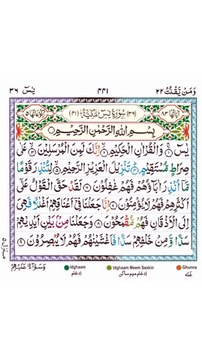 وَمَنْ يَّقْنُتُ ٢٢
٤٤١
يٰسٓ ٣٦
سُوْرَةُ يٰسٓ مَكِّيَّةٌ
بِسْمِ اللّٰهِ الرَّحْمٰنِ الرَّحِيْمِ
يٰسٓ ۝ وَالْقُرْاٰنِ الْحَكِيْمِ ۝ اِنَّكَ لَمِنَ الْمُرْسَلِيْنَ ۝ عَلٰى
صِرَاطٍ مُّسْتَقِيْمٍ ۝ تَنْزِيْلَ الْعَزِيْزِ الرَّحِيْمِ ۝ لِتُنْذِرَ قَوْمًا
مَّآ اُنْذِرَ اٰبَآؤُهُمْ فَهُمْ غٰفِلُوْنَ ۝ لَقَدْ حَقَّ الْقَوْلُ عَلٰٓى
اَكْثَرِهِمْ فَهُمْ لَا يُؤْمِنُوْنَ ۝ اِنَّا جَعَلْنَا فِيْٓ اَعْنَاقِهِمْ اَغْلٰلًا فَهِيَ
اِلَى الْاَذْقَانِ فَهُمْ مُّقْمَحُوْنَ ۝ وَجَعَلْنَا مِنْۢ بَيْنِ اَيْدِيْهِمْ
سَدًّا وَّمِنْ خَلْفِهِمْ سَدًّا فَاَغْشَيْنٰهُمْ فَهُمْ لَا يُبْصِرُوْنَ ۝
وَسَوَآءٌ عَلَيْهِمْ
Idghaam
Idghaam Meem Saakin
Ghunna
ادغام
ادغام میم ساکن
غنہ